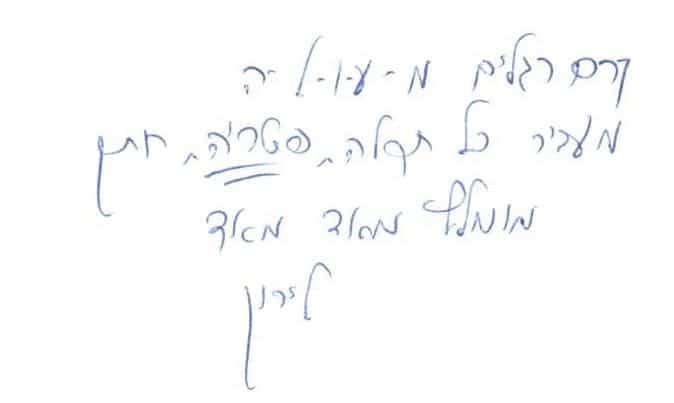 קרם רגלים מ-ע-ו-ל-ה
מעביר כל תקלה, פטריה, חתך
מומלץ מאוד מאוד
לירון